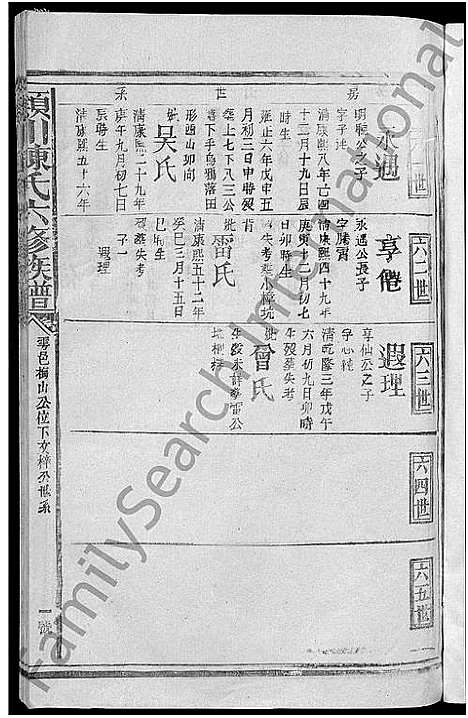 世
系
永遇
明聰公之子
清康熙八年
十二月十九日辰
時生
雍正六年戊申五
月初三日申時歿
葬上七下八三公
喬下手烏鴉落田
形酉山卯向
妣
吳氏
清康熙二十九年
庚午九月初七日
辰時生
清康熙五十六年
六二世
永遇公長子
字騰霄
清康熙四十九年
庚寅十二月初七
日卯時生
歿失考葬小樟坑
妣
雷氏
清康熙五十二年
癸巳三月十五日
巳時生
歿葬失考
子一
遐理
六三世
遐理
享仙公之子
清乾隆三年戊午
六月初九日卯時
生歿葬失考
曾氏
六四世
六五世
潁川陳氏六修族譜
雩邑梅山公位下文梓公世系
一號
FamilySearch International